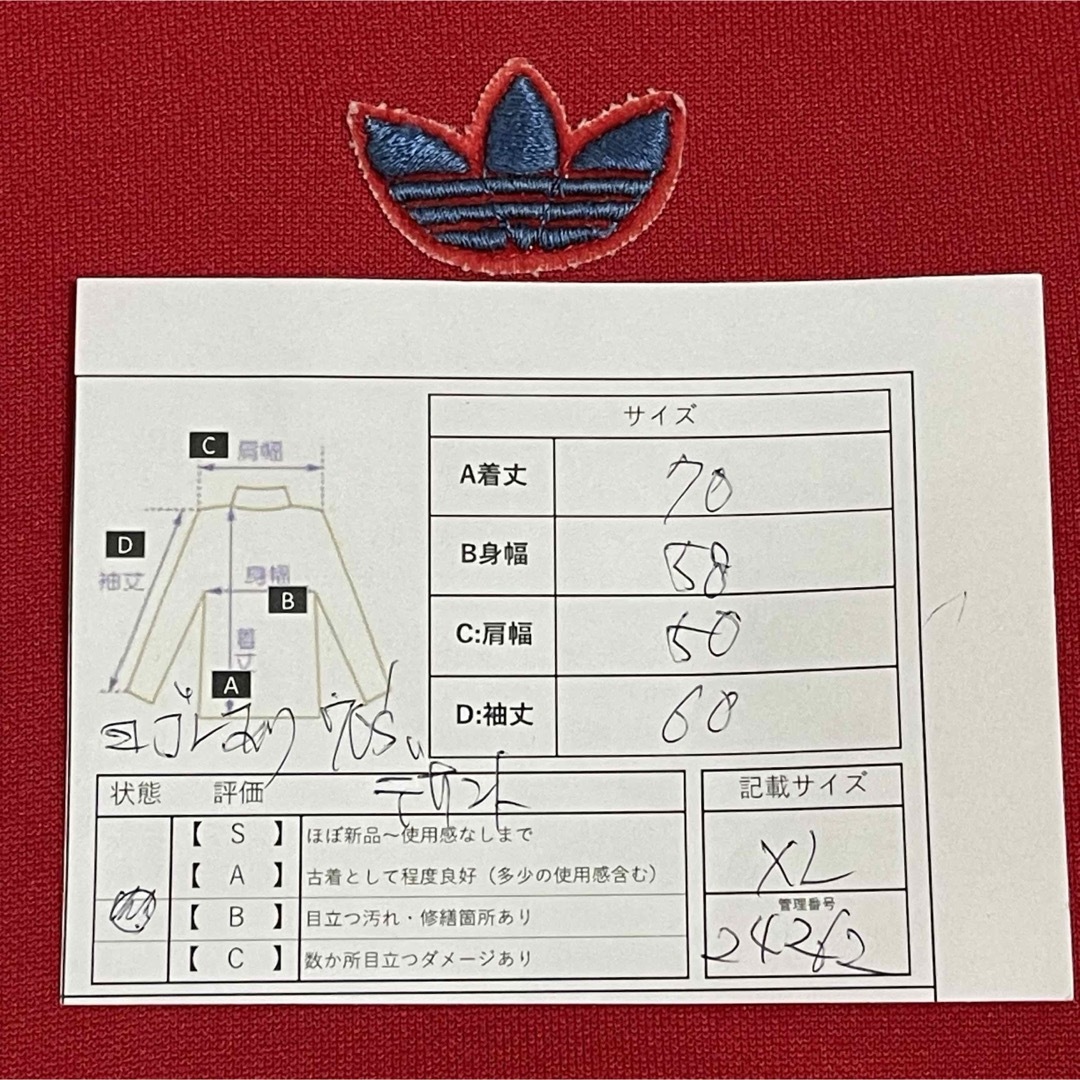 サイズ
C 肩幅
A着丈 70
D
袖丈
B身幅 58
身幅
B
C:肩幅 50
着丈
A
D:袖丈 60
70's
デサント
状態 評価
記載サイズ
【 S 】 ほぼ新品〜使用感なしまで
XL
【 A 】 古着として程度良好（多少の使用感含む）
管理番号
【 B 】 目立つ汚れ・修繕箇所あり
24262
【 C 】 数か所目立つダメージあり